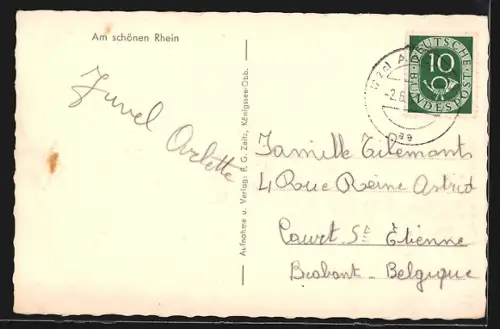 Am schönen Rhein
DEUTSCHE BUNDESPOST
10
-2.6.
Arlette
Aufnahme u. Verlag: F. G. Zeitz, Königssee-Obb.
Famille Tilemants
4 Rue Reine Astrid
Court St Étienne
Brabant - Belgique